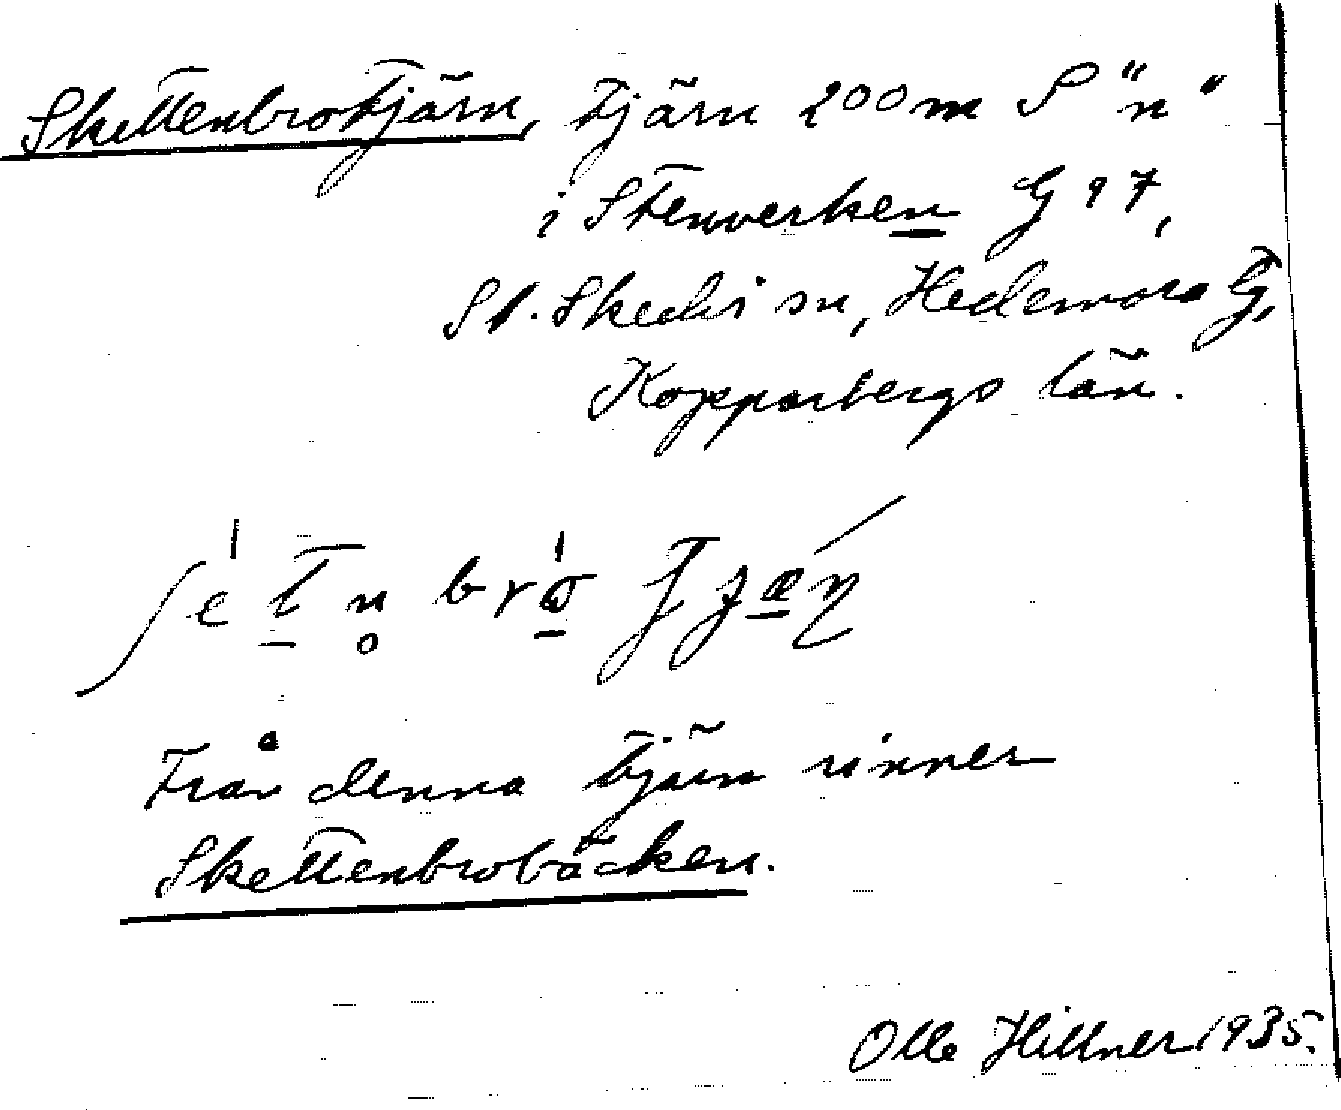 Skettenbrotjärn, tjärn 200 m S "n"
i Stenverken G 97,
St. Skedvi sn, Hedemora
Kopparbergs län.
Från denna tjärn rinner
Skettenbrobäcken.
Olle Hillner 1935.